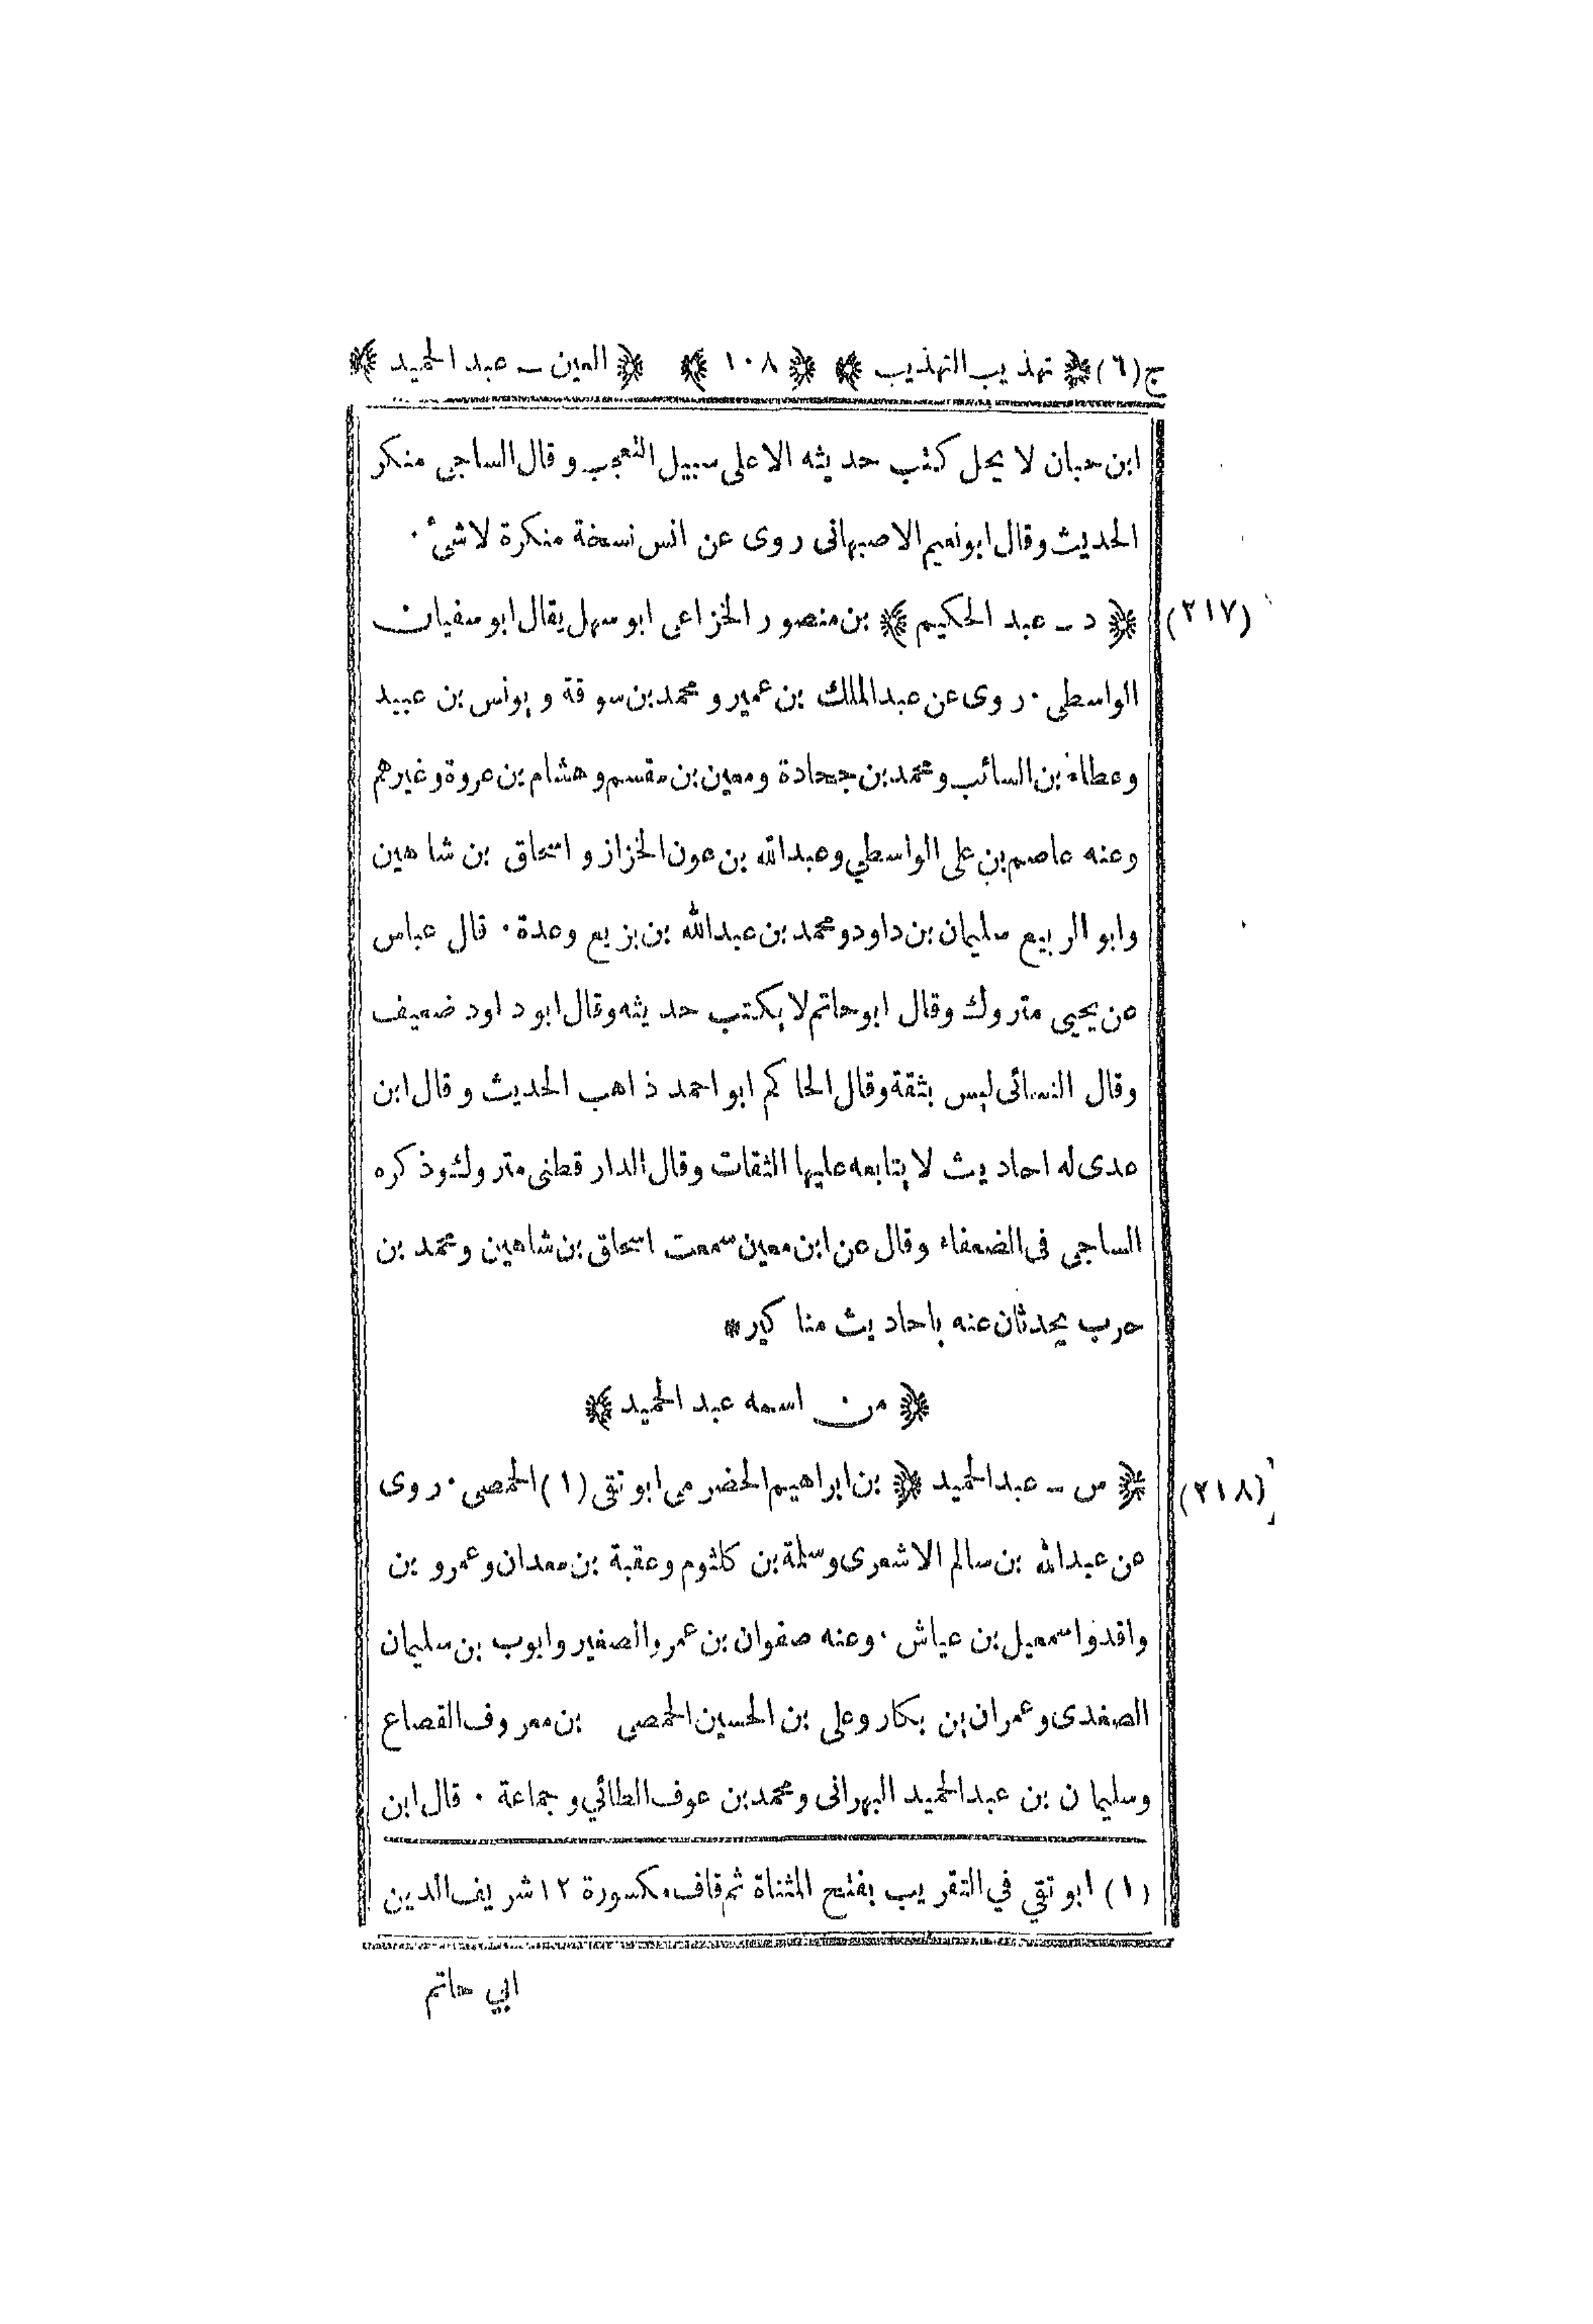 ج(٦) ﴿ تهذيب التهذيب ﴾ ﴿ ١٠٨ ﴾ ﴿ العين ــ عبد الحميد ﴾
ابن حبان لا يحل كتب حديثه الا على سبيل التعجب وقال الساجى منكر
الحديث وقال ابو نعيم الاصبهانى روى عن انس نسخة منكرة لا شىٔ ٠
(٢١٧) ﴿ د ــ عبد الحكيم ﴾ بن منصور الخزاعى ابو سهل يقال ابو سفيان
الواسطى ٠ روى عن عبد الملك بن عمير ومحمد بن سوقة ويونس بن عبيد
وعطاء بن السائب ومحمد بن جحادة ومعين بن مقسم وهشام بن عروة وغيرهم
وعنه عاصم بن على الواسطي وعبد الله بن عون الخزاز واسحاق بن شاهين
وابو الربيع سليمان بن داود ومحمد بن عبدالله بن بزيع وعدة ٠ قال عباس
عن يحيى متروك وقال ابو حاتم لا يكتب حديثه وقال ابو داود ضعيف
وقال النسائى ليس بثقة وقال الحاكم ابو احمد ذاهب الحديث وقال ابن
عدى له احاديث لا يتابعه عليها الثقات وقال الدار قطنى متروك وذكره
الساجى فى الضعفاء وقال عن ابن معين سمعت اسحاق بن شاهين ومحمد بن
حرب يحدثان عنه باحاديث مناكير *
﴿ من اسمه عبد الحميد ﴾
(٢١٨) ﴿ س ــ عبد الحميد ﴾ بن ابراهيم الحضرمى ابو تقى (١) الحمصى ٠ روى
عن عبدالله بن سالم الاشعرى وسلمة بن كلثوم وعقبة بن معدان وعمرو بن
واقد واسمعيل بن عياش ٠ وعنه صفوان بن عمرو الصغير وايوب بن سليمان
الصغدى وعمران بن بكار وعلى بن الحسين الحمصى بن معروف القصاع
وسليمان بن عبد الحميد البهرانى ومحمد بن عوف الطائي وجماعة ٠ قال ابن
(١) ابو تقي في التقريب بفتح المثناة ثم قاف مكسورة ١٢ شريف الدين
ابي حاتم